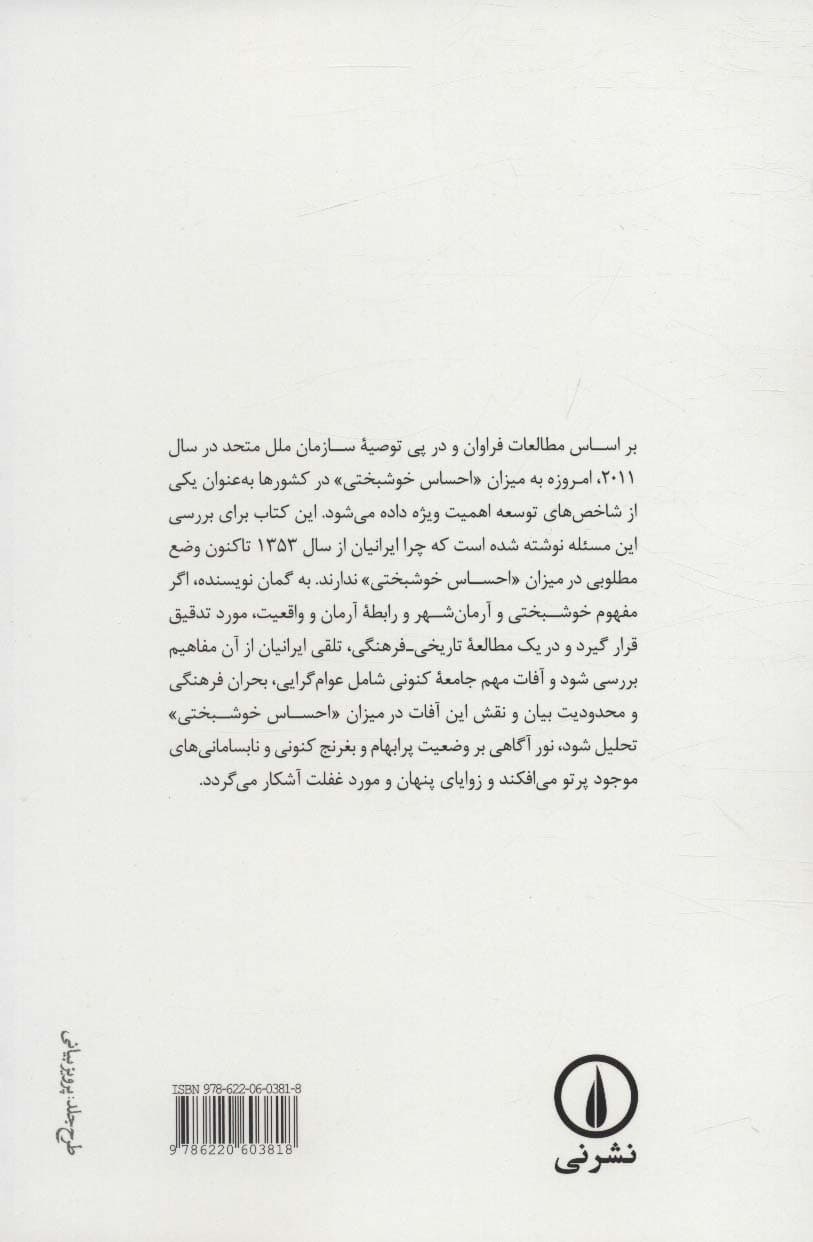 بر اساس مطالعات فراوان و در پی توصیۀ سازمان ملل متحد در سال
۲۰۱۱، امروزه به میزان «احساس خوشبختی» در کشورها به‌عنوان یکی
از شاخص‌های توسعه اهمیت ویژه داده می‌شود. این کتاب برای بررسی
این مسئله نوشته شده است که چرا ایرانیان از سال ۱۳۵۳ تاکنون وضع
مطلوبی در میزان «احساس خوشبختی» ندارند. به گمان نویسنده، اگر
مفهوم خوشبختی و آرمان‌شهر و رابطۀ آرمان و واقعیت، مورد تدقیق
قرار گیرد و در یک مطالعۀ تاریخی-فرهنگی، تلقی ایرانیان از آن مفاهیم
بررسی شود و آفات مهم جامعۀ کنونی شامل عوام‌گرایی، بحران فرهنگی
و محدودیت بیان و نقش این آفات در میزان «احساس خوشبختی»
تحلیل شود، نور آگاهی بر وضعیت پرابهام و بغرنج کنونی و نابسامانی‌های
موجود پرتو می‌افکند و زوایای پنهان و مورد غفلت آشکار می‌گردد.
طرح جلد: پرویز بیانی
ISBN 978-622-06-0381-8
9 786220 603818
نشر نی